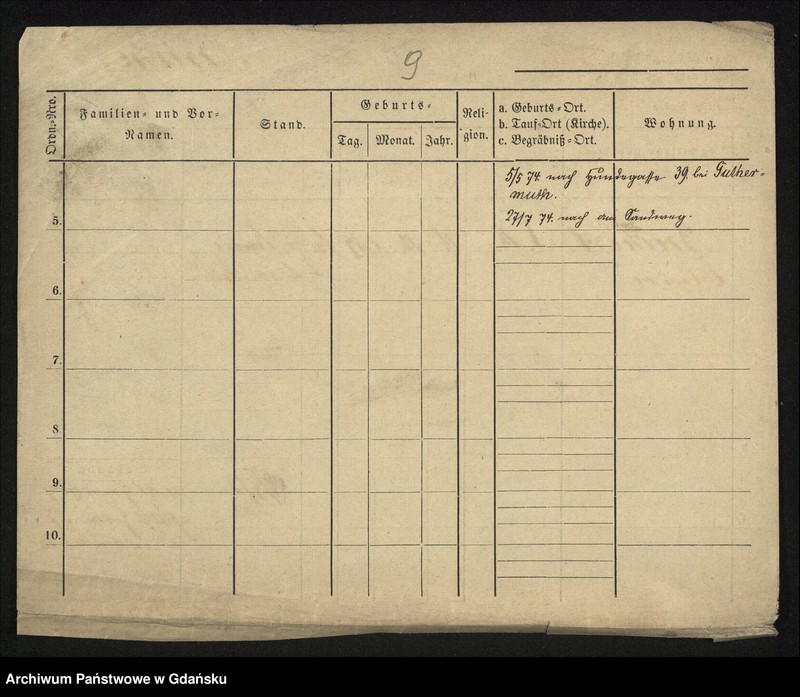 9
Ordn.-Nro.
Familien- und Vor-
Namen.
Stand.
Geburts-
Tag. Monat. Jahr.
Reli-
gion.
a. Geburts-Ort.
b. Tauf-Ort (Kirche).
c. Begräbniß-Ort.
Wohnung.
5/5 74. nach Hundegasse 39. bei Futher-
muth.
27/7 74. nach am Sandweg.
5.
6.
7.
8.
9.
10.
Archiwum Państwowe w Gdańsku